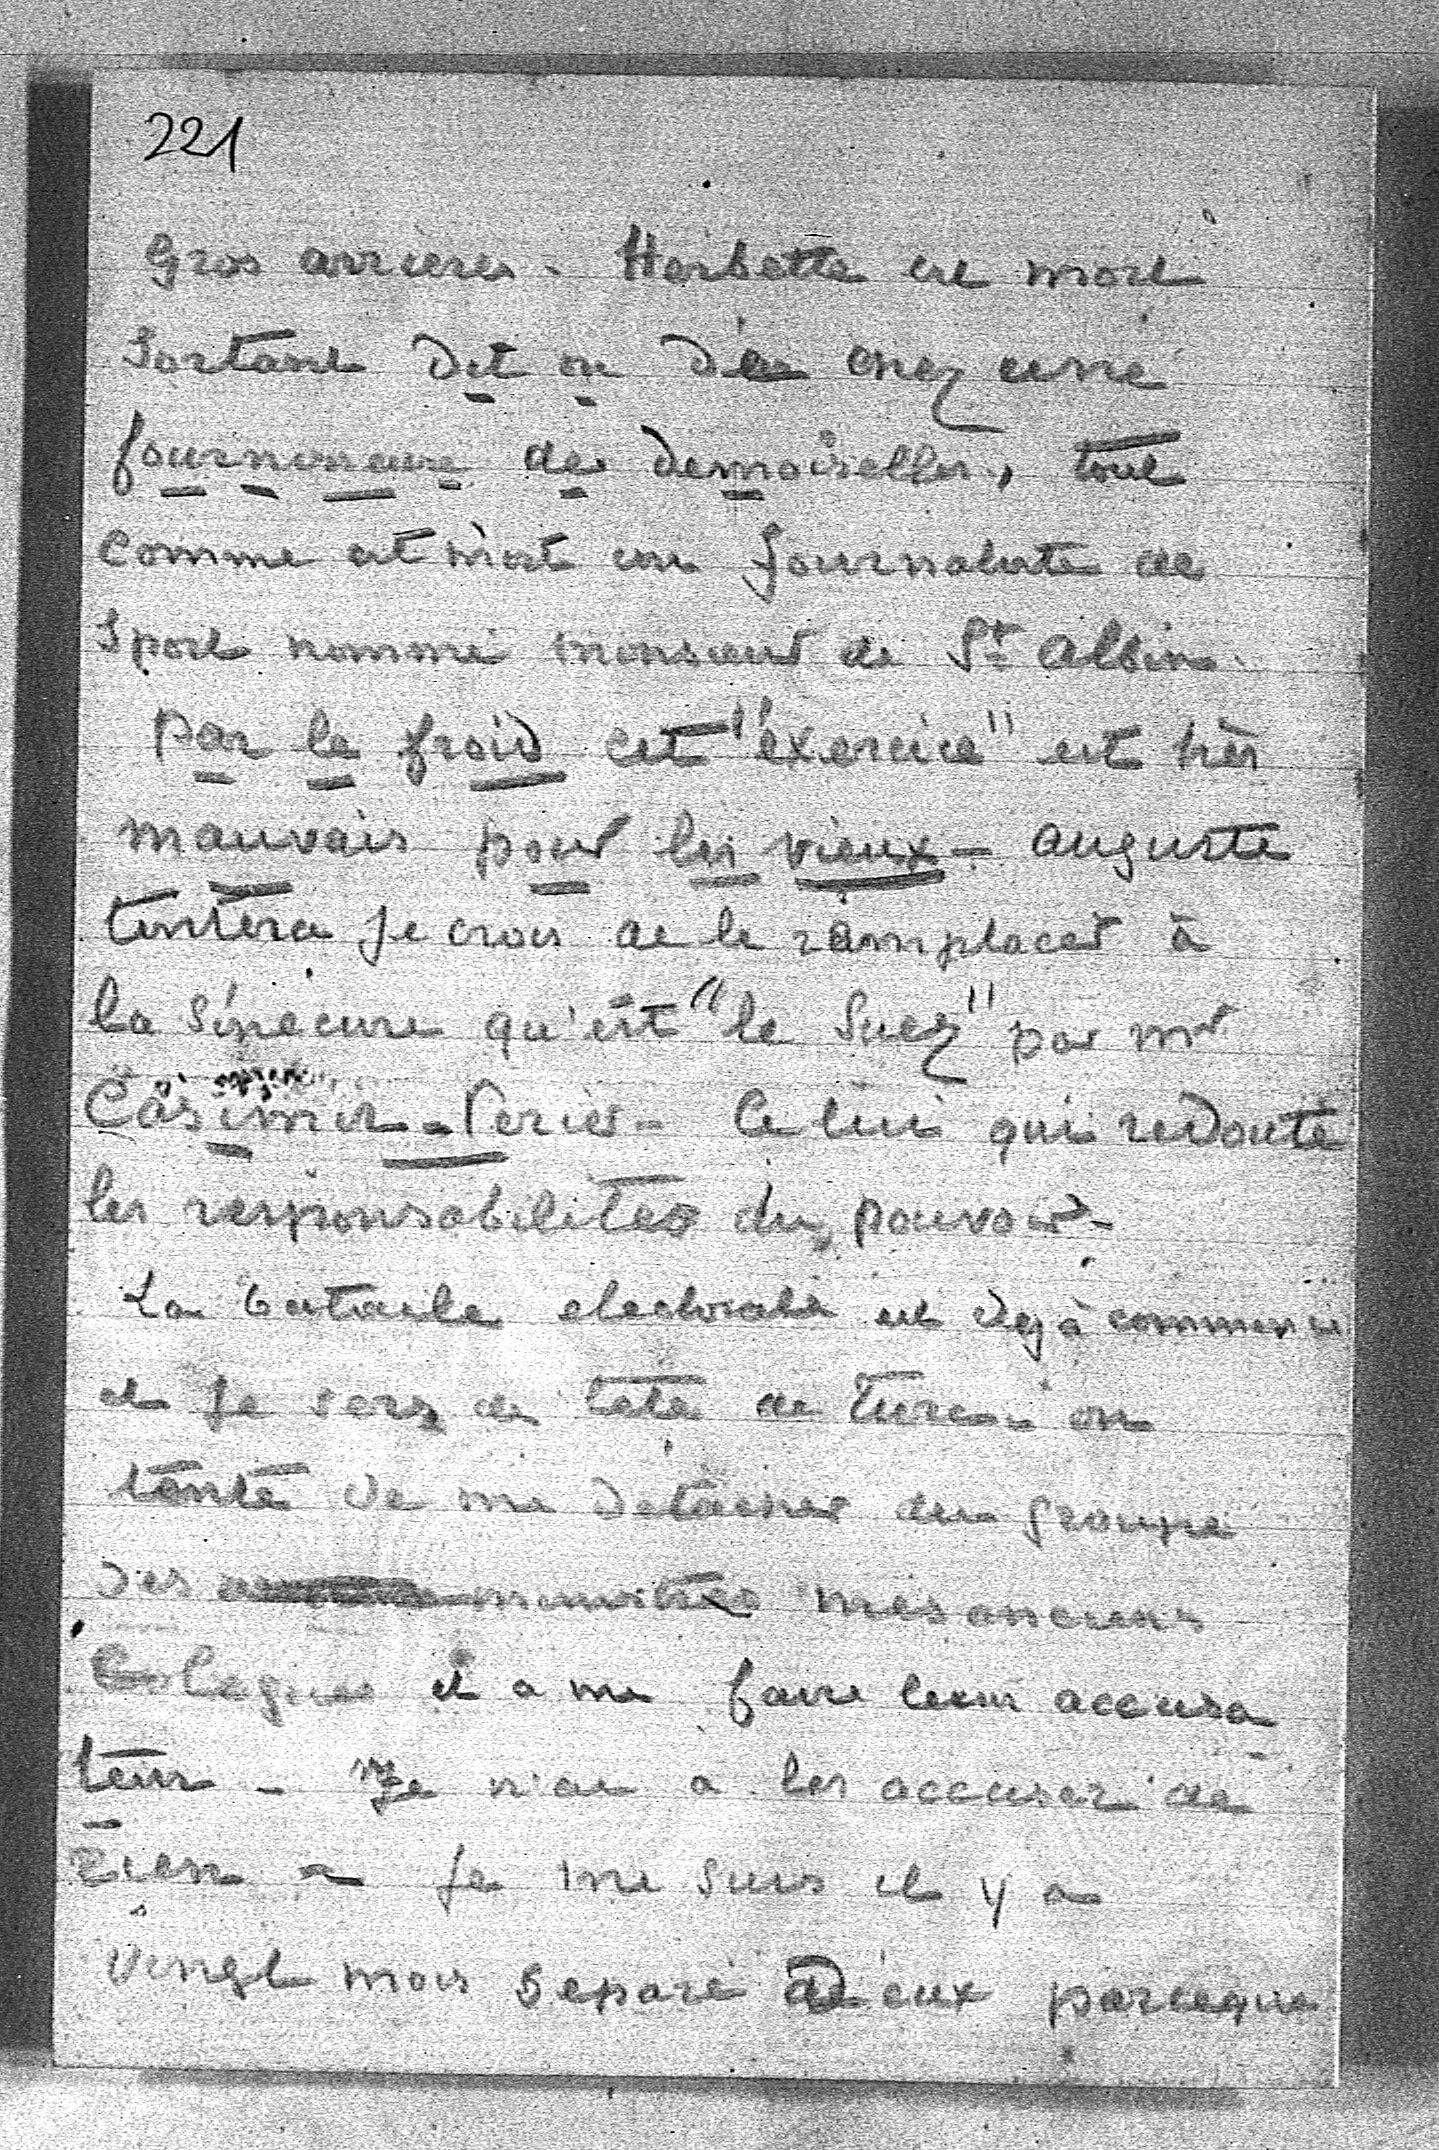 221
Gros arrieres. Herbette est mort
sortant dit on de chez une
fournisseuse de demoiselles, tout
comme est mort un journaliste de
Sport nommé monsieur de St Albin.
par le froid cet "exercice" est très
mauvais pour les vieux - auguste
tentera je crois de le remplacer à
la sinecure qu'est "le Suez" par mr
Casimir-Perier - Celui qui redoute
les responsabilités du pouvoir -
La bataille electorale est deja commencé
et je sers de tete de turc - on
tente de me detacher du groupe
des ministres mes anciens
Colegues et a me faire leur accusa
teur - Je n'ai a les accuser de
rien - je me suis il y a
vingt mois separé d'eux parceque